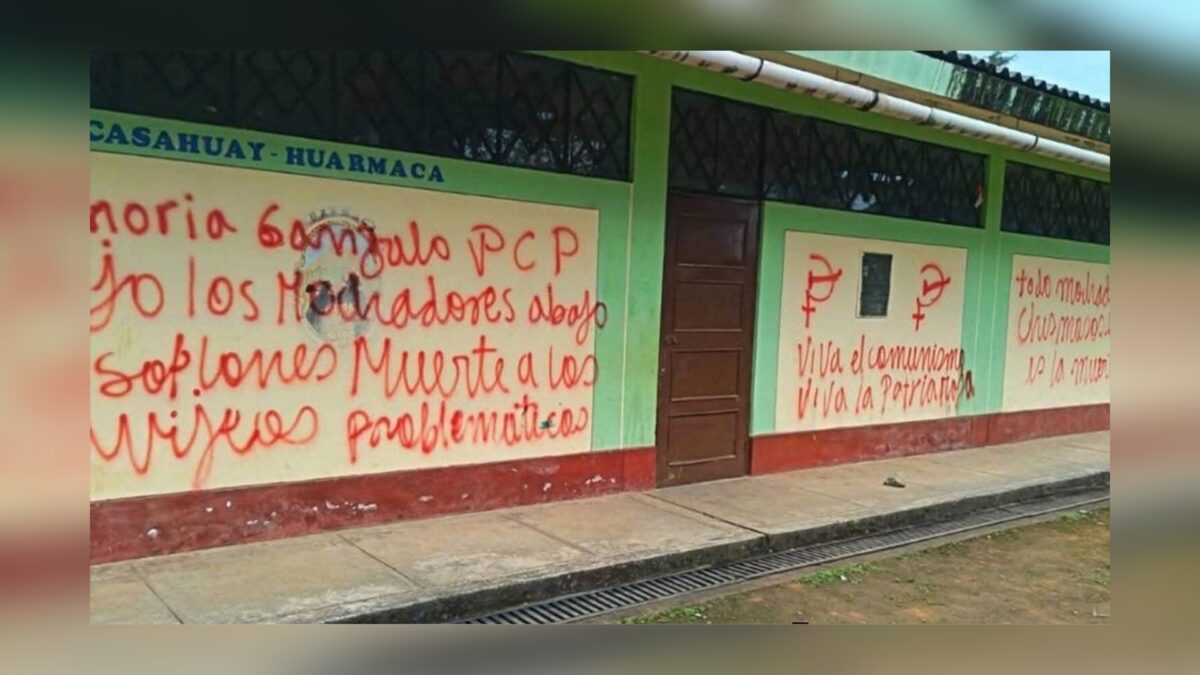 CASAHUAY - HUARMACA
moria Gonzalo PCP
ajo los Mochadores abajo
soplones Muerte a los
vijeos problemáticos
viva el comunismo
viva la Patria roja
todo mochad
chismosos
es la muert